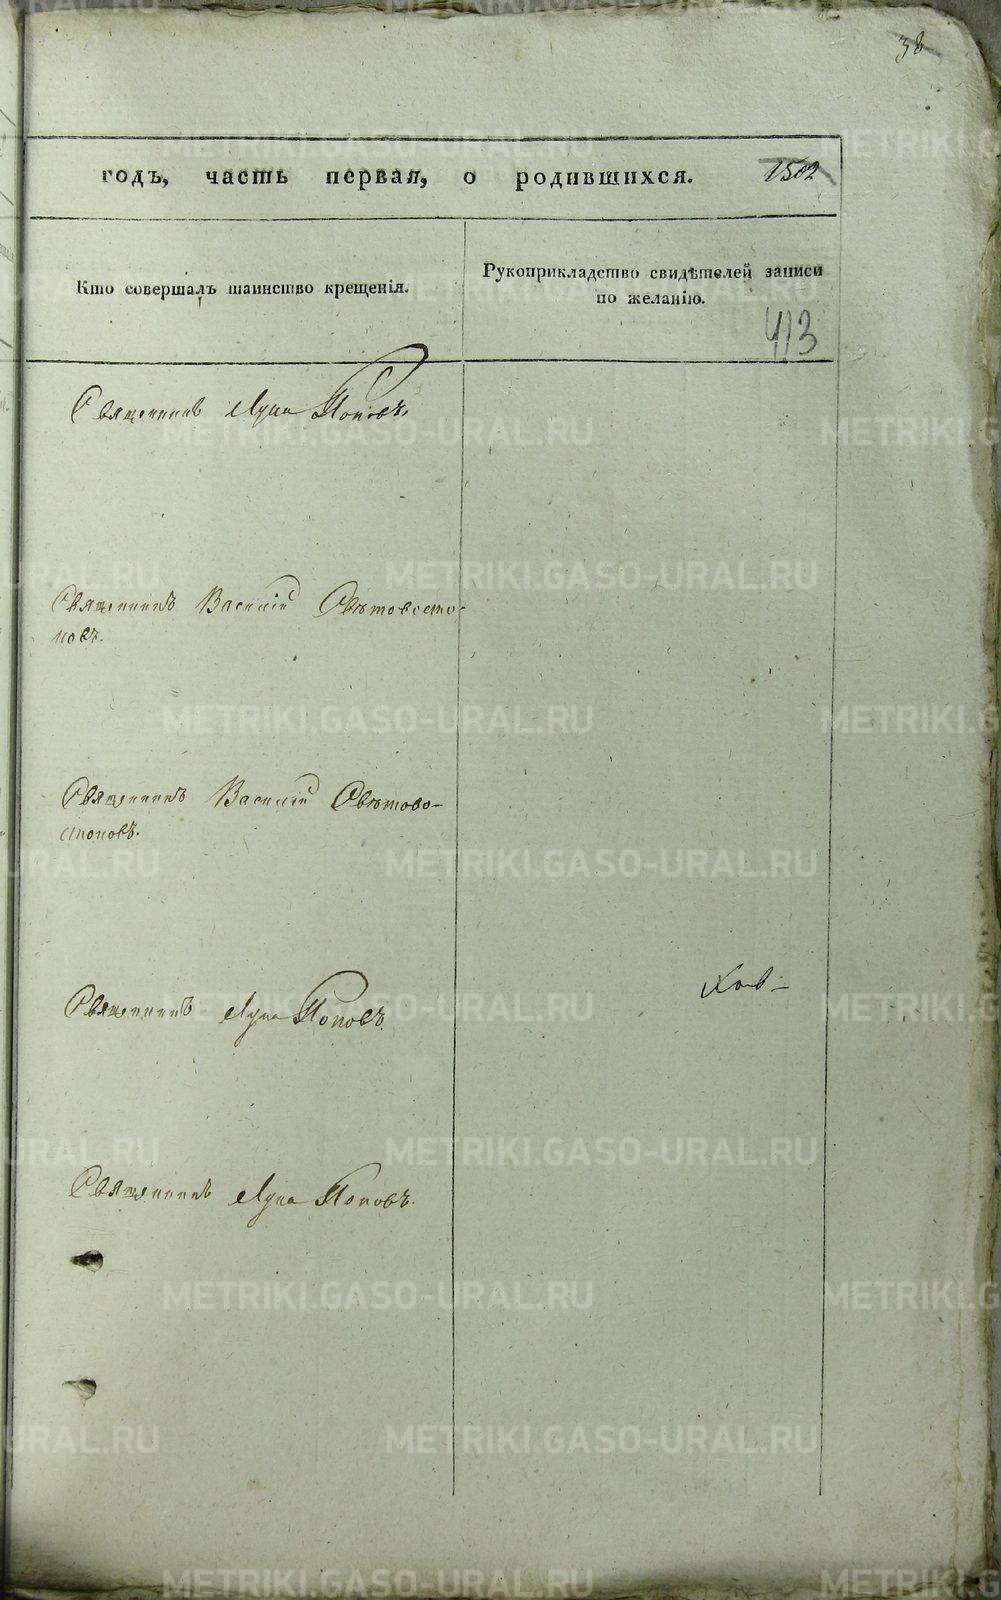 38
годъ, часть первая, о родившихся. 1502
Кто совершалъ таинство крещенія.
Рукоприкладство свидѣтелей записи
по желанію.
413
Священникъ Лука Поповъ.
Священникъ Василій Свѣтовосто-
ковъ.
Священникъ Василій Свѣтово-
стоковъ.
Священникъ Лука Поповъ.
Священникъ Лука Поповъ.
METRIKI.GASO-URAL.RU